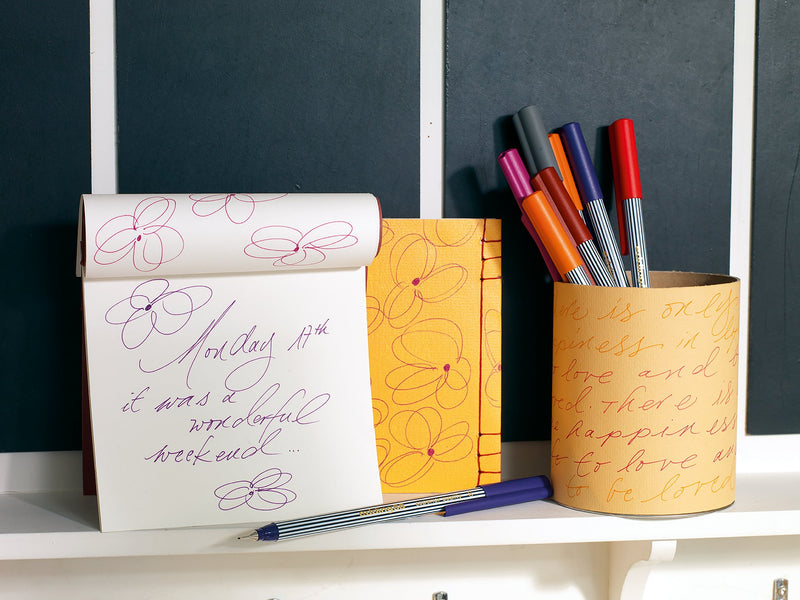 Monday 17th
it was a
wonderful
weekend...
is only
ppiness in
love and
ed. There is
happiness
to love an
to be loved